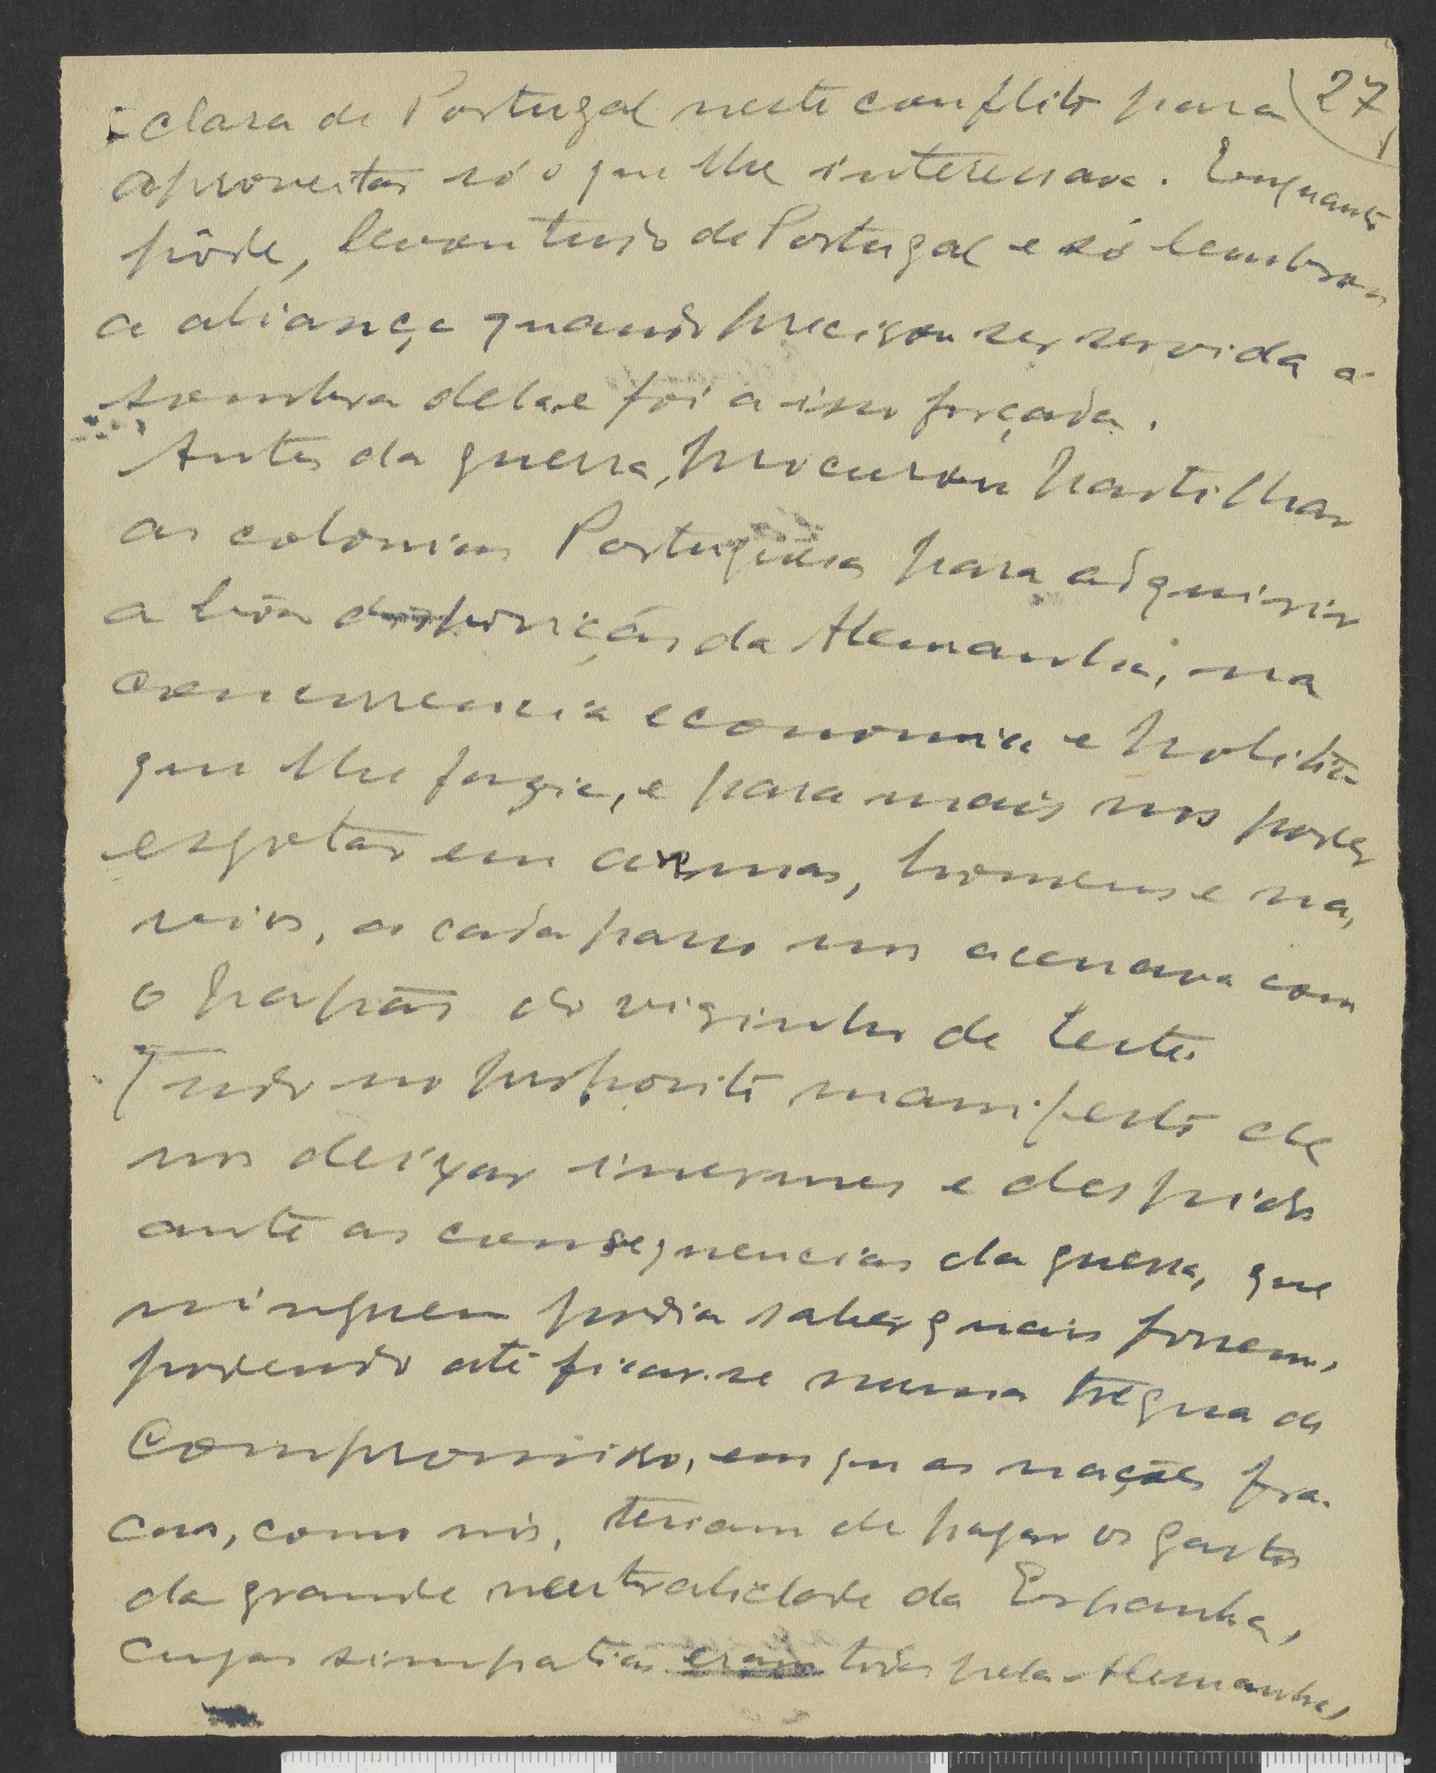 clara de Portugal neste conflito para 27
aproveitar só o que lhe interessava. Enquanto
pôde, levou tudo de Portugal e só lembrou
a aliança quando precisou ser servida á
sombra dela e foi a isso forçada.
Antes da guerra, procurou partilhar
as colonias Portuguesas para adquirir
a bôa disposição da Alemanha, na
concurrencia economica e politica
que lhe fugia, e para mais nos poder
esgotar em armas, homens e na,
vios, a cada passo nos acenava com
o papão do visinho de leste.
Tudo no proposito manifesto de
nos deixar inermes e despidos
ante as consequencias da guerra, que
ninguem podia saber quais fossem,
podendo até ficar-se numa tregua de
compromisso, em que as nações fra-
cas, como nós, teriam de pagar os gastos
da grande neutralidade da Espanha,
cujas simpatias eram todas pela Alemanha,